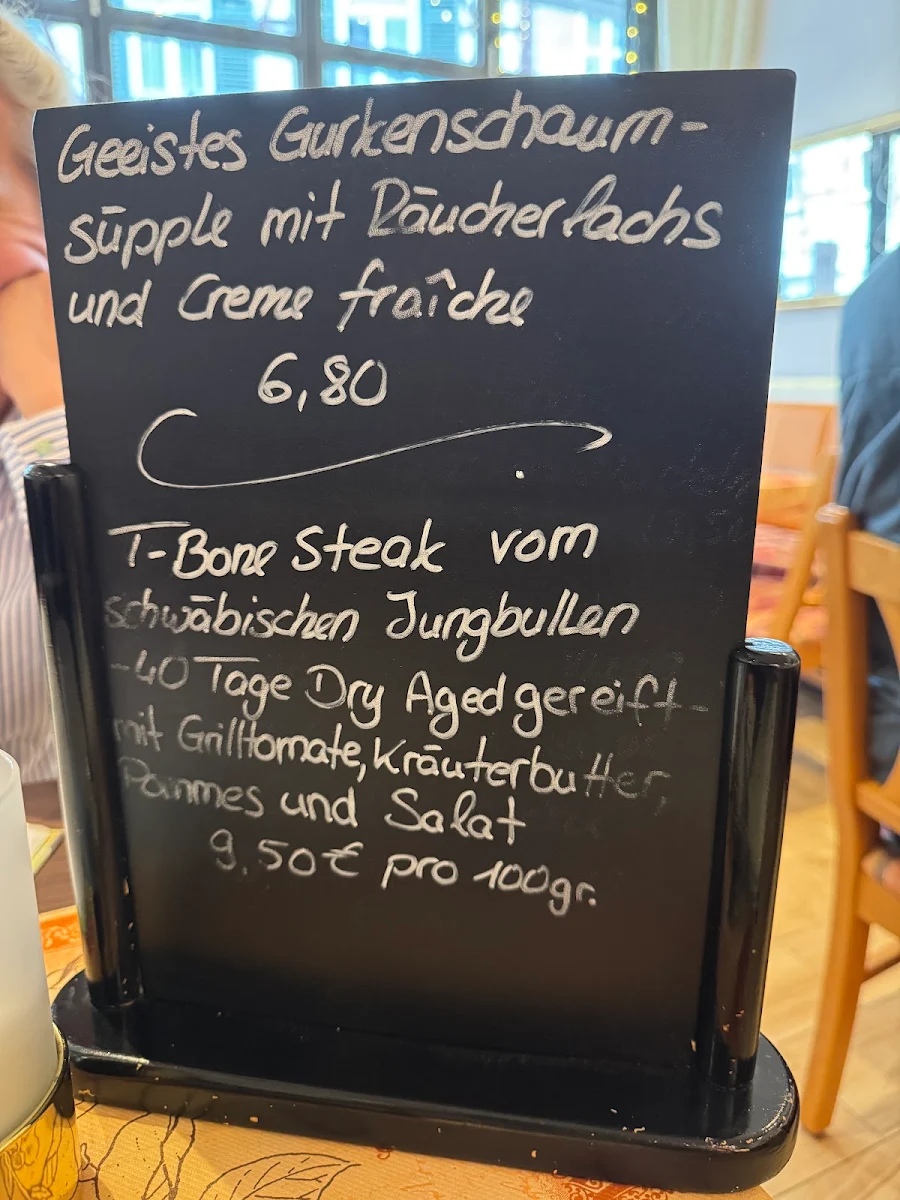 Geeistes Gurkenschaum-
süpple mit Räucherlachs
und Creme fraîche
6,80
T-Bone Steak vom
schwäbischen Jungbullen
-40 Tage Dry Aged gereift-
mit Grilltomate, Kräuterbutter,
Pommes und Salat
9,50€ pro 100gr.